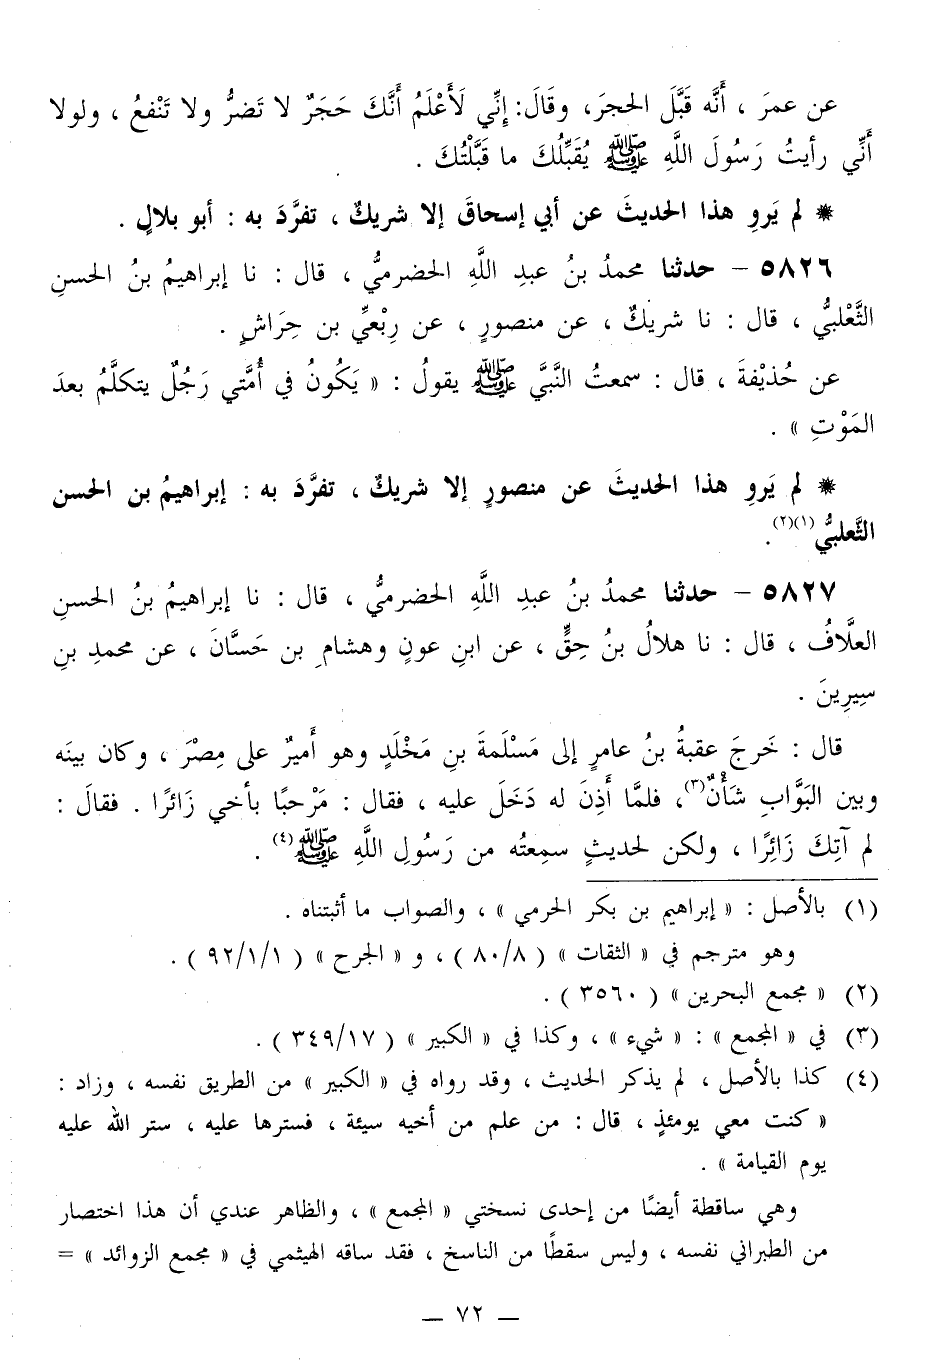 عن عمرَ ، أنَّه قَبَّلَ الحجرَ، وقَالَ: إنِّي لَأَعْلَمُ أَنَّكَ حَجَرٌ لا تَضرُّ ولا تَنْفعُ ، ولولا
أَنِّي رأيتُ رَسُولَ اللَّهِ ﷺ يُقَبِّلُكَ ما قَبَّلْتُكَ .
* لم يَروِ هذا الحديثَ عن أبي إسحاقَ إلا شريكٌ ، تفرَّدَ به : أبو بلالٍ .
٥٨٢٦ – حدثنا محمدُ بنُ عبدِ اللَّهِ الحضرميُّ ، قال : نا إبراهيمُ بنُ الحسنِ
الثَّعْلبيُّ ، قال : نا شريكٌ ، عن منصورٍ ، عن رِبْعيِّ بن حِرَاشٍ .
عن حُذيْفةَ ، قال : سمعتُ النَّبيَّ ﷺ يقولُ : « يَكُونُ في أُمَّتي رَجُلٌ يتكلَّمُ بعدَ
المَوْتِ » .
* لم يَروِ هذا الحديثَ عن منصورٍ إلا شريكٌ ، تفرَّدَ به : إبراهيمُ بن الحسن
الثَّعلبيُّ(١)(٢).
٥٨٢٧ – حدثنا محمدُ بنُ عبدِ اللَّهِ الحضرميُّ ، قال : نا إبراهيمُ بنُ الحسنِ
العلَّافُ ، قال : نا هلالُ بنُ حِقٍّ ، عن ابنِ عونٍ وهشامِ بن حَسَّانَ ، عن محمدِ بنِ
سِيرِينَ .
قال : خَرجَ عقبةُ بنُ عامرٍ إلى مَسْلَمةَ بنِ مَخْلَدٍ وهو أَميرٌ على مِصْرَ ، وكان بينَه
وبين البَوَّابِ شَأْنٌ(٣)، فلمَّا أَذِنَ له دَخَلَ عليه ، فقال : مَرْحبًا بأخي زَائرًا . فقالَ :
لم آتِكَ زَائِرًا ، ولكن لحديثٍ سمِعتُه من رَسُولِ اللَّهِ ﷺ(٤) .
(١) بالأصل : « إبراهيم بن بكر الحرمي » ، والصواب ما أثبتناه .
وهو مترجم في « الثقات » ( ٨٠/٨ ) ، و « الجرح » ( ٩٢/١/١ ) .
(٢) « مجمع البحرين » ( ٣٥٦٠ ) .
(٣) في « المجمع » : « شيء » ، وكذا في « الكبير » ( ٣٤٩/١٧ ) .
(٤) كذا بالأصل ، لم يذكر الحديث ، وقد رواه في « الكبير » من الطريق نفسه ، وزاد :
« كنت معي يومئذٍ ، قال : من علم من أخيه سيئة ، فسترها عليه ، ستر الله عليه
يوم القيامة » .
وهي ساقطة أيضًا من إحدى نسختي « المجمع » ، والظاهر عندي أن هذا اختصار
من الطبراني نفسه ، وليس سقطًا من الناسخ ، فقد ساقه الهيثمي في « مجمع الزوائد » =
— ٧٢ —